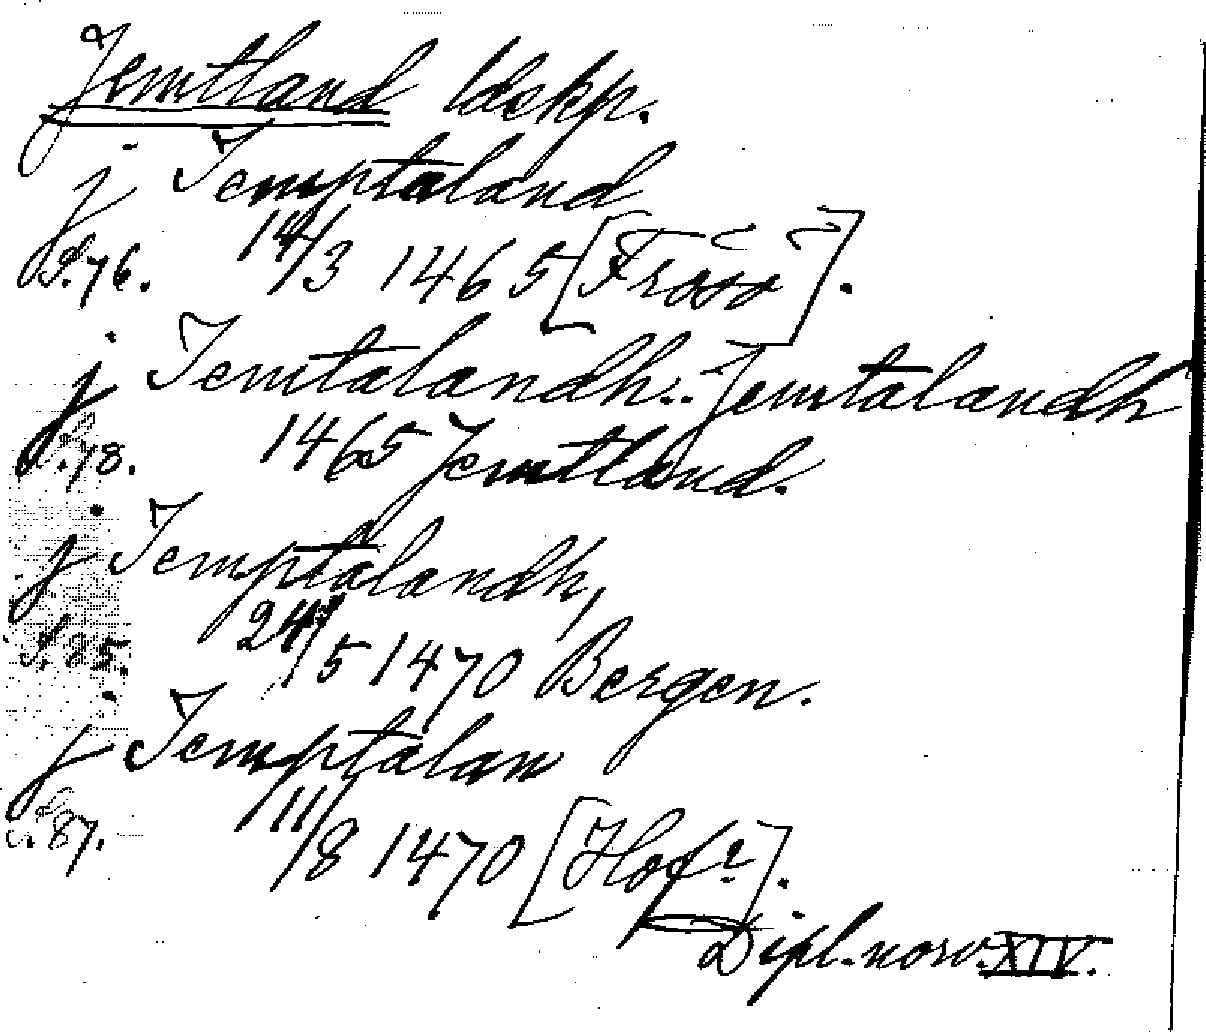 Jemtland ldskp.
j Jemptaland
S.76. 14/3 1465 [Frösö].
j Jemtalandh.. Jemtalandh
S.78. 1465 Jemtland.
j Jemptalandh,
S.85. 24/5 1470 Bergen.
j Jemptalan
S.87. 11/8 1470 [Hof?].
Dipl. norv. XIV.